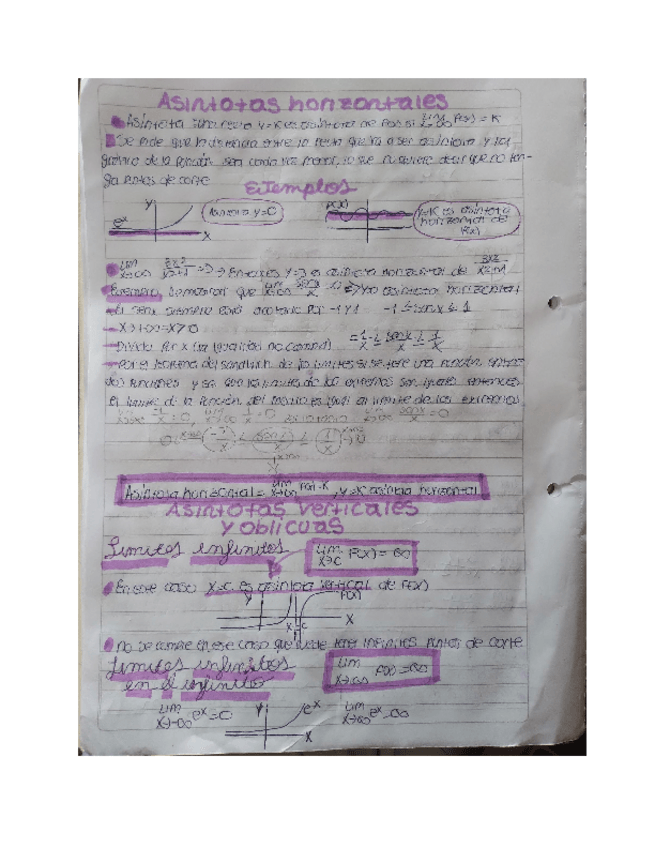 Asintotas horizontales
Asíntota una recta y=K es asíntota de F(x) si lim x→∞ F(x) = K
Se pide que la distancia entre la recta que va a ser asíntota y la
gráfica de la función sea cada vez menor, lo que no quiere decir que no ten-
ga puntos de corte
Ejemplos
y
F(x)
eˣ
x
Asíntota y=0
y=K es asíntota
horizontal de
F(x)
lim x→∞ = 3 → Entonces y=3 es asíntota horizontal de
Ejemplo Demostrar que lim x→∞ senx/x = 0 → y=0 asíntota horizontal
siempre está acotado por -1 y 1 -1 ≤ senx ≤ 1
- x→+∞ = x>0
- Divido por x (la igualdad no cambia) = -1/x ≤ senx/x ≤ 1/x
- Por el teorema del sandwich de los límites si se tiene una función entre
dos funciones y si los límites de los extremos son iguales entonces
el límite de la función del medio es igual al límite de los extremos.
-1/x = 0, 1/x = 0 por lo tanto senx/x = 0
Asíntota horizontal = lim x→∞ F(x) = K, y=K asíntota horizontal
Asíntotas verticales
y oblicuas
Limites infinitos
lim x→c F(x) = ∞
En este caso x=c es asíntota vertical de F(x)
y
F(x)
x=c
x
No se cumple en ese caso que puede tener infinitos puntos de corte
Limites infinitos
en el infinito
lim x→∞ F(x) = ∞
lim x→-∞ eˣ = 0
y
eˣ
x
lim x→∞ eˣ = ∞